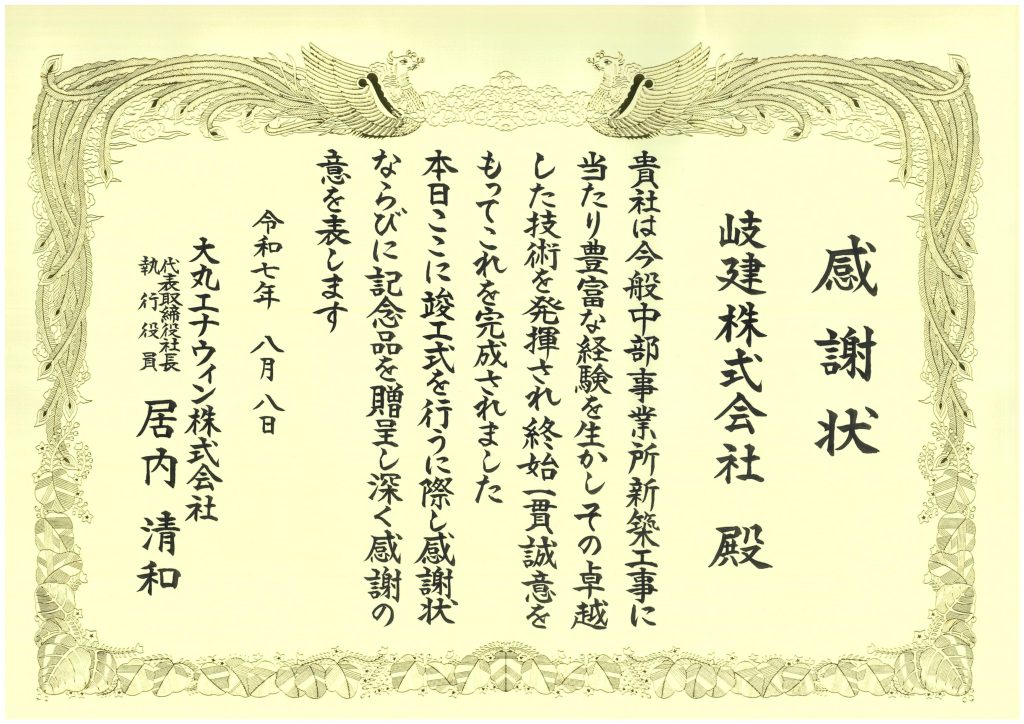 感謝状
岐建株式会社 殿
貴社は今般中部事業所新築工事に
当たり豊富な経験を生かしその卓越
した技術を発揮され終始一貫誠意を
もってこれを完成されました
本日ここに竣工式を行うに際し感謝状
ならびに記念品を贈呈し深く感謝の
意を表します
令和七年 八月 八日
大丸エナウィン株式会社
代表取締役社長
執行役員
居内 清和